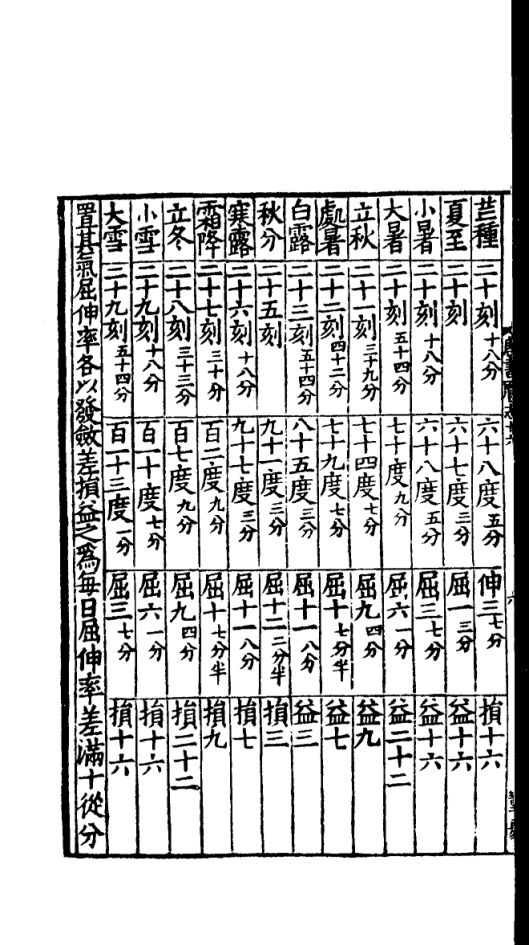 芒種 二十刻十八分 六十八度五分 伸三七分 損十六
夏至 二十刻 六十七度三分 屈一三分 益十六
小暑 二十刻十八分 六十八度五分 屈三七分 益十六
大暑 二十刻五十四分 七十度九分 屈六一分 益二十二
立秋 二十一刻三十九分 七十四度七分 屈九四分 益九
處暑 二十二刻四十二分 七十九度七分 屈十七分半 益七
白露 二十三刻五十四分 八十五度三分 屈十一八分 益三
秋分 二十五刻 九十一度三分 屈十二二分半 損三
寒露 二十六刻十八分 九十七度三分 屈十一八分 損七
霜降 二十七刻三十分 百二度九分 屈十七分半 損九
立冬 二十八刻三十三分 百七度九分 屈九四分 損二十二
小雪 二十九刻十八分 百一十度七分 屈六一分 損十六
大雪 二十九刻五十四分 百一十三度一分 屈三七分 損十六
置其氣屈伸率各以發斂差損益之爲每日屈伸率差滿十從分